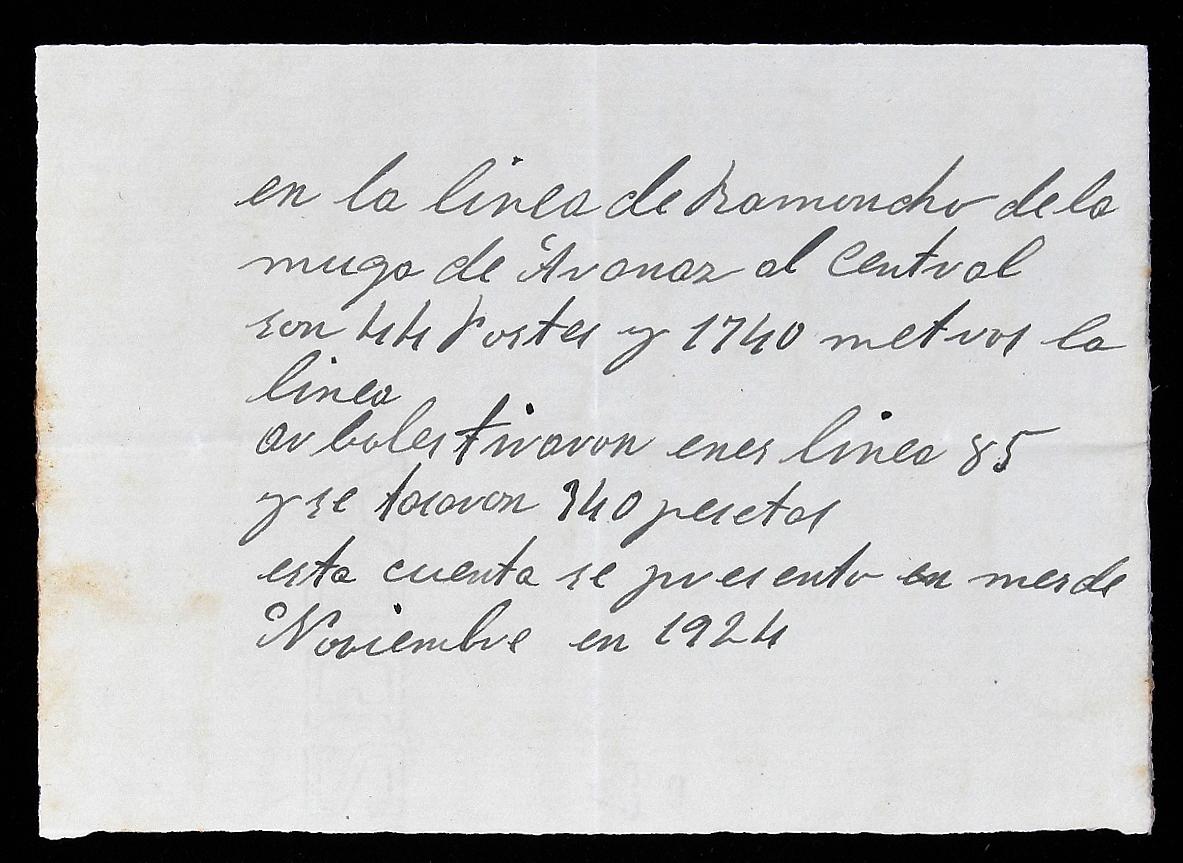 en la linea de Ramoncho de la
muga de Aranaz al Central
son 44 Postes y 1740 metros la
linea
arboles tiraron enes linea 85
y se tasaron 340 pesetas
esta cuenta se presento en mes de
Noviembre en 1924